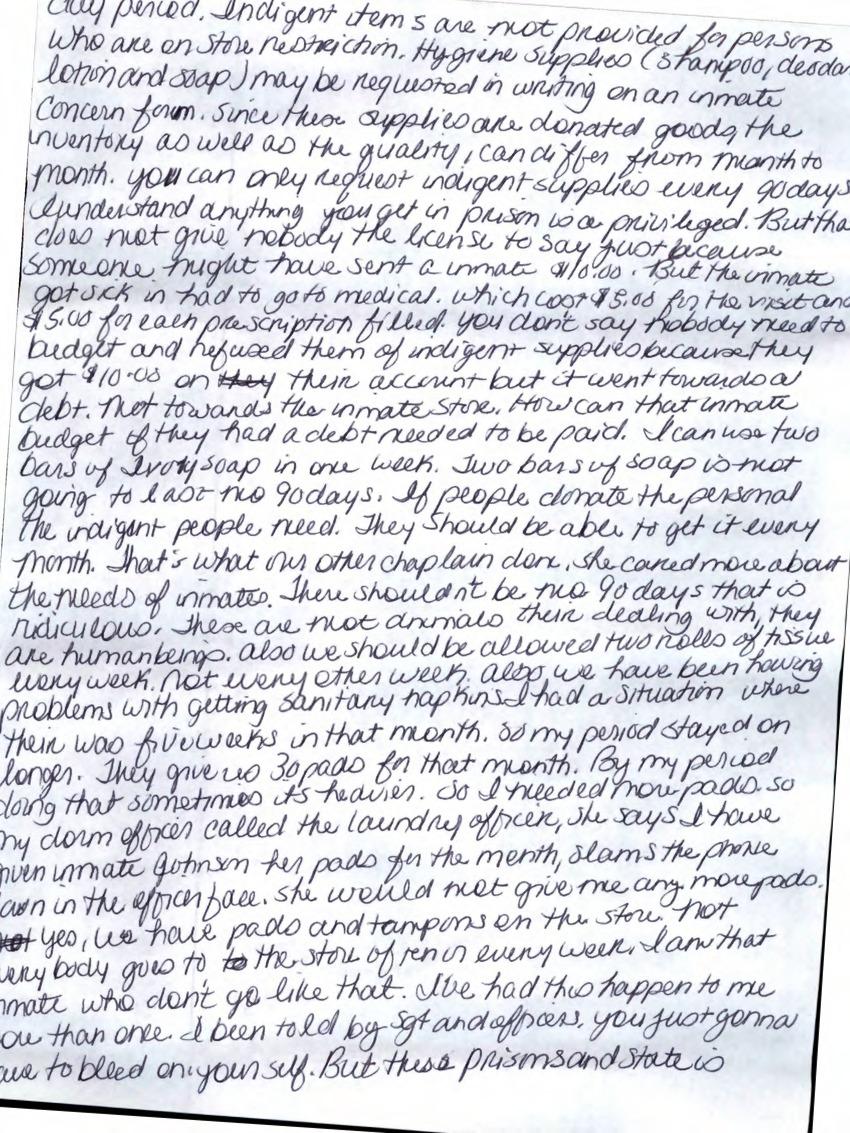 day period. Indigent items are not provided for persons
who are on store restriction. Hygiene supplies (shampoo, deodar
lotion and soap) may be requested in writing on an inmate
Concern form. Since these supplies are donated goods, the
inventory as well as the quality, can differ from month to
month. you can only request indigent supplies every 90 days
I understand anything you get in prison is a privileged. But tha
does not give nobody the license to say just because
someone might have sent a inmate $10.00. But the inmate
got sick in had to go to medical. which cost $5.00 for the visit and
$5.00 for each prescription filled. you don't say nobody need to
budget and refused them of indigent supplies because they
got $10.00 on they their account but it went towards a
debt. Not towards the inmate store. How can that inmate
budget if they had a debt needed to be paid. I can use two
bars of Ivory soap in one week. Two bars of soap is not
going to last no 90 days. If people donate the personal
the indigent people need. They should be able to get it every
month. That's what our other chaplain done, she cared more about
the needs of inmates. There shouldn't be no 90 days that is
ridiculous. These are not animals their dealing with, they
are human beings. also we should be allowed two rolls of tissue
every week. Not every other week. also we have been having
problems with getting sanitary napkins I had a situation where
their was five weeks in that month. So my period stayed on
longer. They give us 30 pads for that month. By my period
doing that sometimes its heavier. So I needed more pads. so
my dorm officer called the laundry officer, she says I have
given inmate Johnson her pads for the month, slams the phone
down in the officer face. She would not give me any more pads.
yes, we have pads and tampons on the store. Not
everybody goes to to the store often every week. I am that
inmate who don't go like that. I've had this happen to me
more than once. I been told by Sgt and officers, you just gonna
have to bleed on yourself. But these prisons and state is